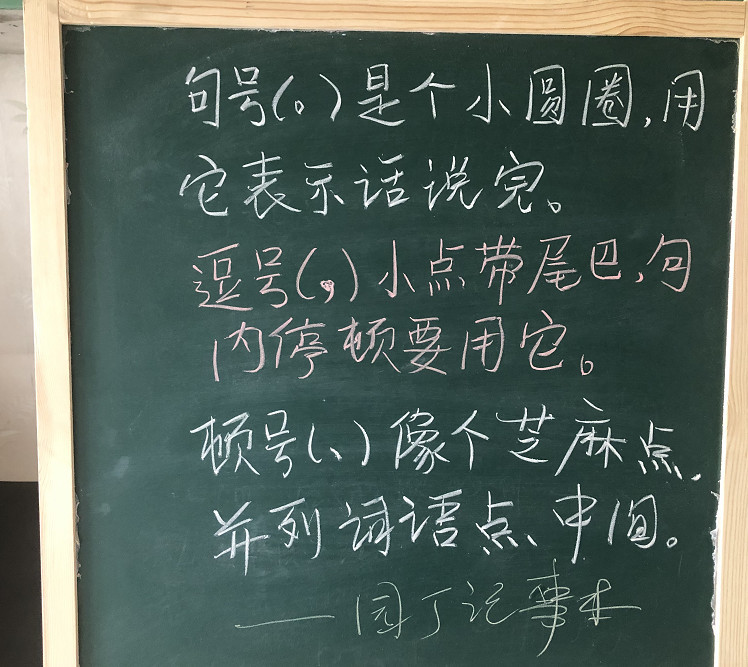 句号(。)是个小圆圈,用
它表示话说完。
逗号(,)小点带尾巴,句
内停顿要用它。
顿号(、)像个芝麻点,
并列词语点、中间。
——园丁记事本